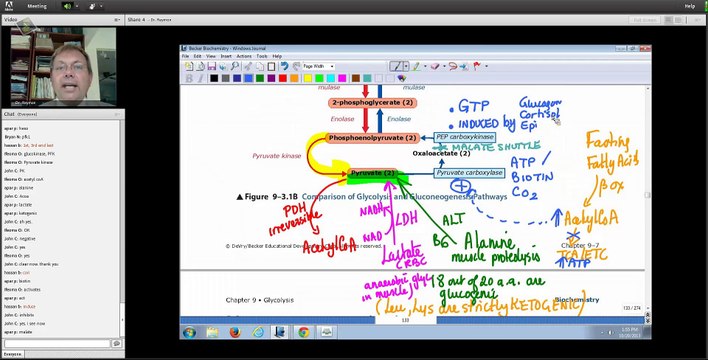 Meeting
Help
Video
Share 4 - Dr. Raymon
Dr. Raymon
Chat (Everyone)
Becker Biochemistry - Windows Journal
File Edit View Insert Actions Tools Help
Page Width
mulase
mulase
2-phosphoglycerate (2)
Enolase
Enolase
Phosphoenolpyruvate (2)
Pyruvate kinase
Pyruvate (2)
PEP carboxykinase
MALATE SHUTTLE
Oxaloacetate (2)
Pyruvate carboxylase
• GTP
• INDUCED by
Glucagon
Cortisol
Epi
ATP/
BIOTIN
CO2
+
Fasting
Fatty Acids
β OX
↑ Acetyl CoA
TCA/ETC
↑ ATP
▲ Figure 9–3.1B Comparison of Glycolysis and Gluconeogenesis Pathways
© DeVry/Becker Educational Dev
Chapter 9–7
PDH
irreversible
Acetyl CoA
NADH
LDH
NAD
Lactate
(RBC
anaerobic glyc
in muscle)
ALT
B6
Alanine
muscle proteolysis
18 out of 20 a.a. are
glucogenic
(Leu, Lys are strictly KETOGENIC)
Chapter 9 • Glycolysis
Biochemistry
133
133 / 274
apar p: hass
Bryan N: pfk1
hassan b: 1st, 3rd and last
Ifeoma O: glucokinase, PFK
Ifeoma O: Pyruvate kinase
John C: PK
John C: yes
apar p: alanine
John C: Acoa
apar p: lactate
apar p: ketogenic
John C: oh, yes
Ifeoma O: OK
John C: negative
John C: yes
Ifeoma O: yes
John C: clear now. thank you
apar p: biotin
Ifeoma O: activates
apar p: act
hassan b: induce
John C: inhibits
John C: yes, I see now
Everyone